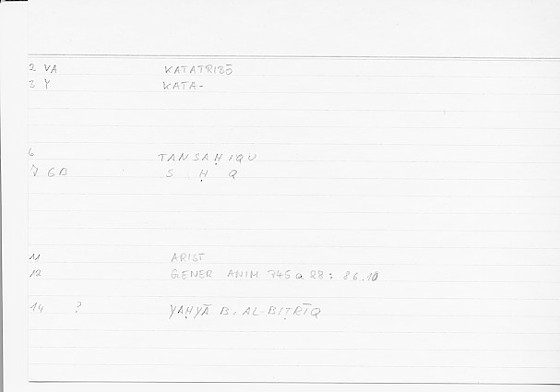 2 VA KATATRIBŌ
3 Y KATA-
6 TANSAḤIQU
7 GB S Ḥ Q
11 ARIST
12 GENER ANIM 745 a 28 : 86.10
14 ? YAḤYĀ B. AL-BIṬRĪQ